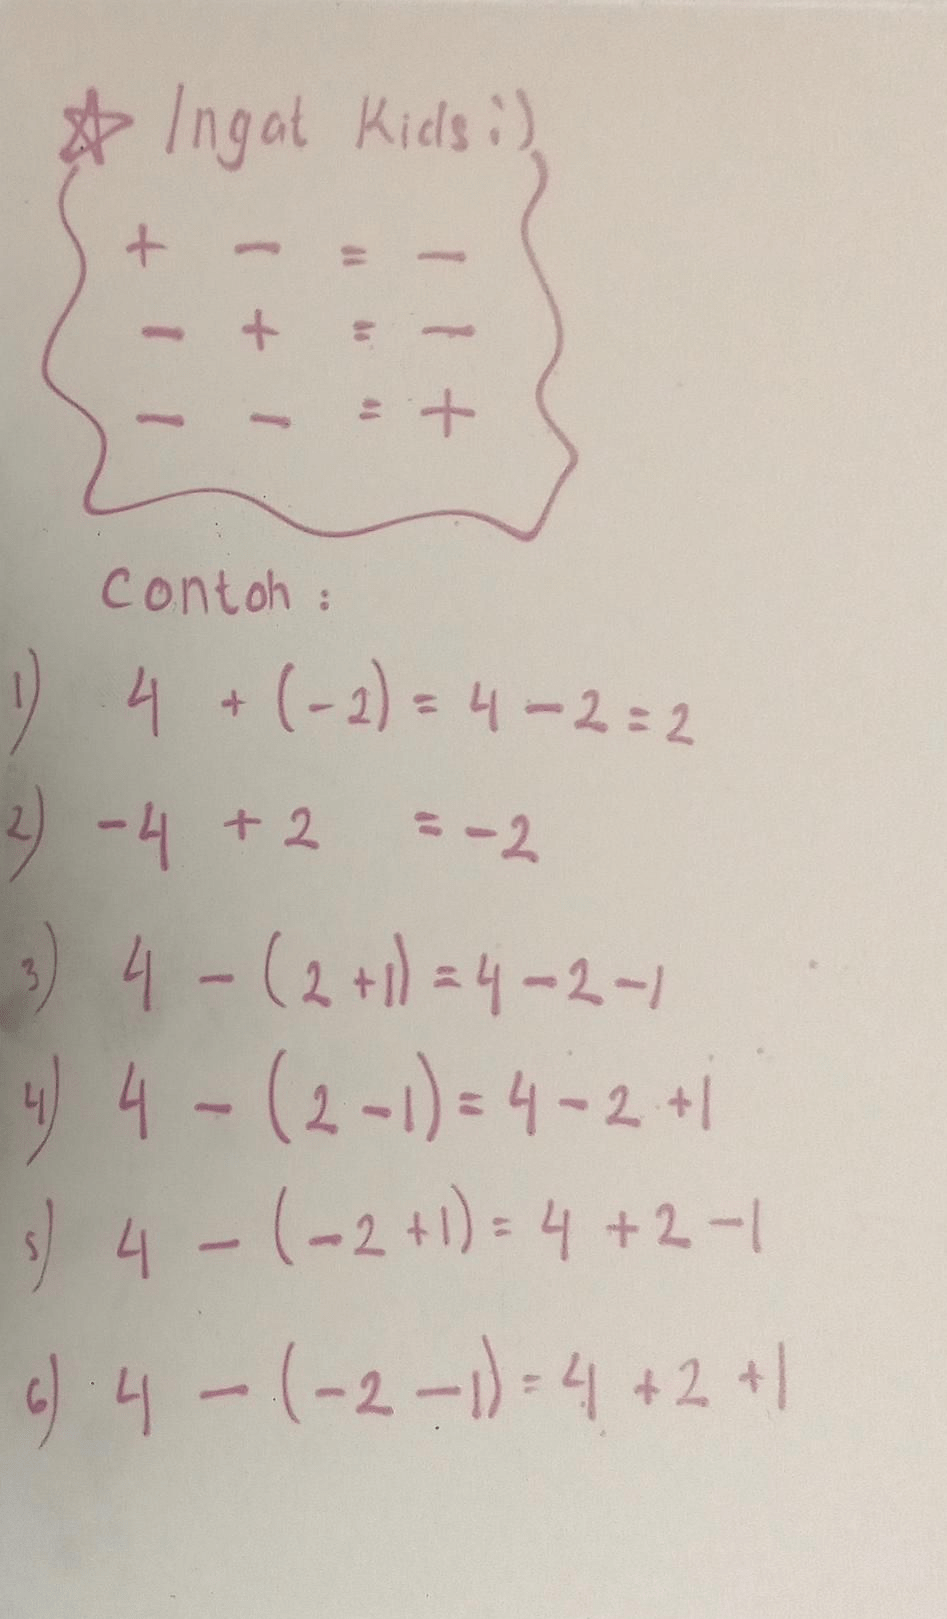 ☆ Ingat Kids :)
+ - = -
- + = -
- - = +
Contoh :
1) 4 + (-2) = 4 - 2 = 2
2) -4 + 2 = -2
3) 4 - (2 +1) = 4 - 2 - 1
4) 4 - (2 - 1) = 4 - 2 + 1
5) 4 - (-2 +1) = 4 + 2 - 1
6) 4 - (-2 - 1) = 4 + 2 + 1